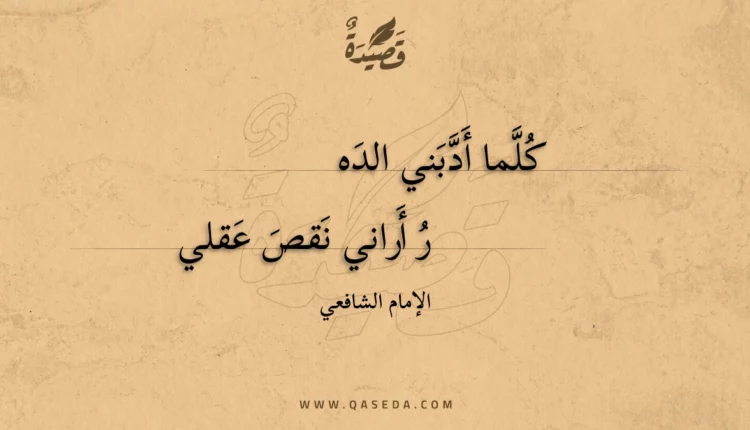 قَصِيدَةٌ
كُلَّما أَدَّبَني الدَه
رُ أَراني نَقصَ عَقلي
الإمام الشافعي
WWW.QASEDA.COM